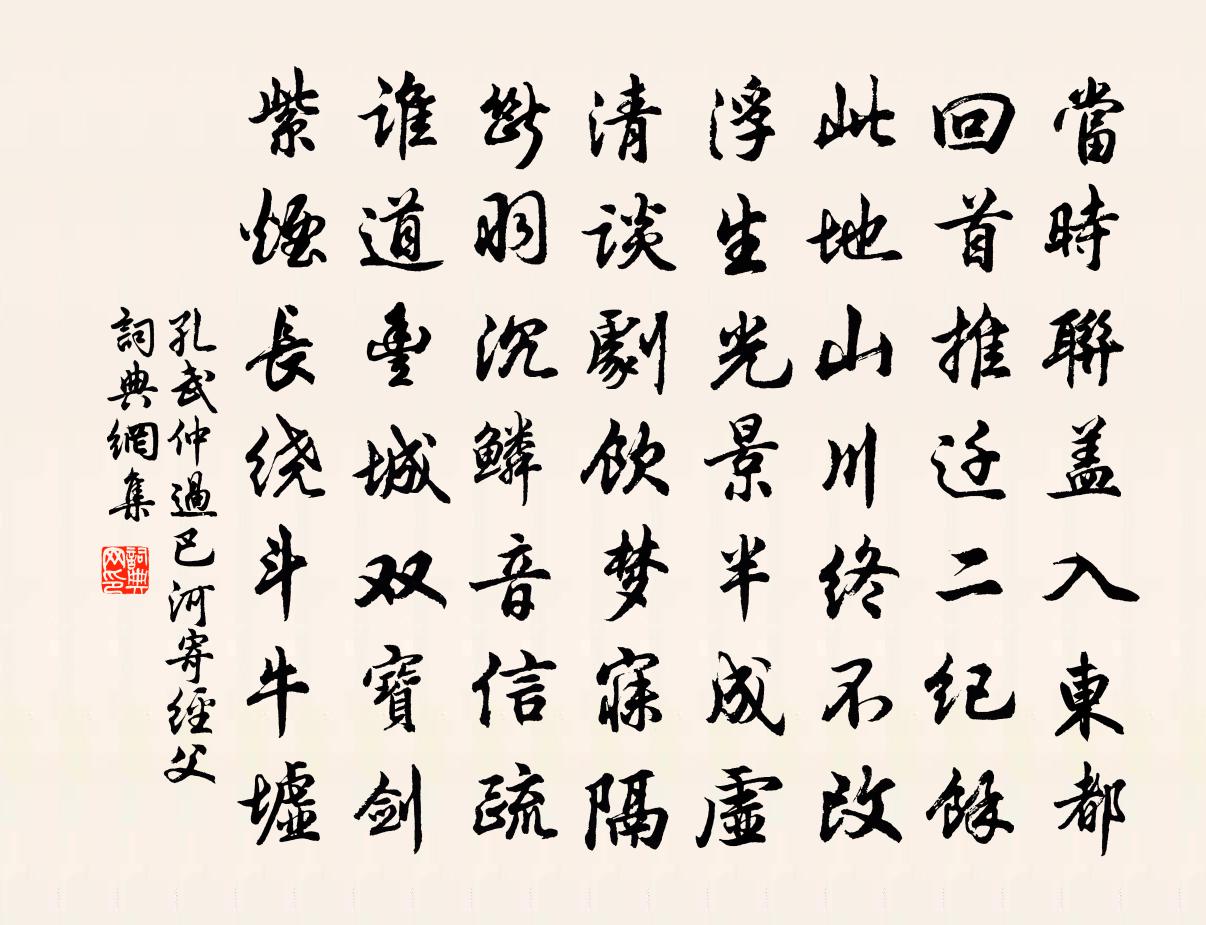 當時聯盖入東都
回首推迁二纪餘
此地山川终不改
浮生光景半成虛
清談劇飲梦寐隔
斷羽沉鳞音信疏
谁道豐城双寶剑
紫煙長绕斗牛墟
孔武仲過巴河寄經父
詞典網集
詞典网印